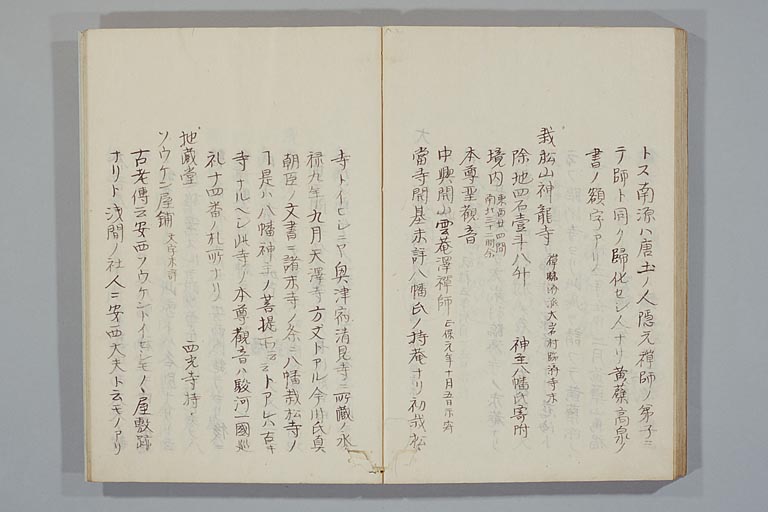 トス南源ハ唐土ノ人隠元禅師ノ弟子ニ
テ師ト同ク歸化セシ人ナリ黄蘗高泉ノ
書ノ額字アリ
栽松山神龍寺 禅臨済派大岩村臨済寺末
除地四石壹斗八升 神主八幡氏寄附
境内 東西廿四間 南北三十二間余
本尊聖觀音
中興開山雲菴澤禪師 正保元年十月五日示寂
當寺開基未詳八幡氏ノ持菴ナリ初栽松
寺トイヒシニヤ奥津宿清見寺ニ所藏ノ永
禄九年九月天澤寺方丈トアル今川氏真
朝臣ノ文書ニ諸末寺ノ条ニ八幡栽松寺ノ
ヿ是ハ八幡神主ノ菩提所云云トアレハ古キ
寺ナルヘシ此寺ノ本尊觀音ハ駿河一國巡
礼十四番ノ札所ナリ
地蔵堂 西光寺持
ソウケン屋舗 文字未詳
古老傳云安西ソウケントイヒシモノヽ屋敷跡
ナリト浅間ノ社人ニ安西大夫ト云モノアリ